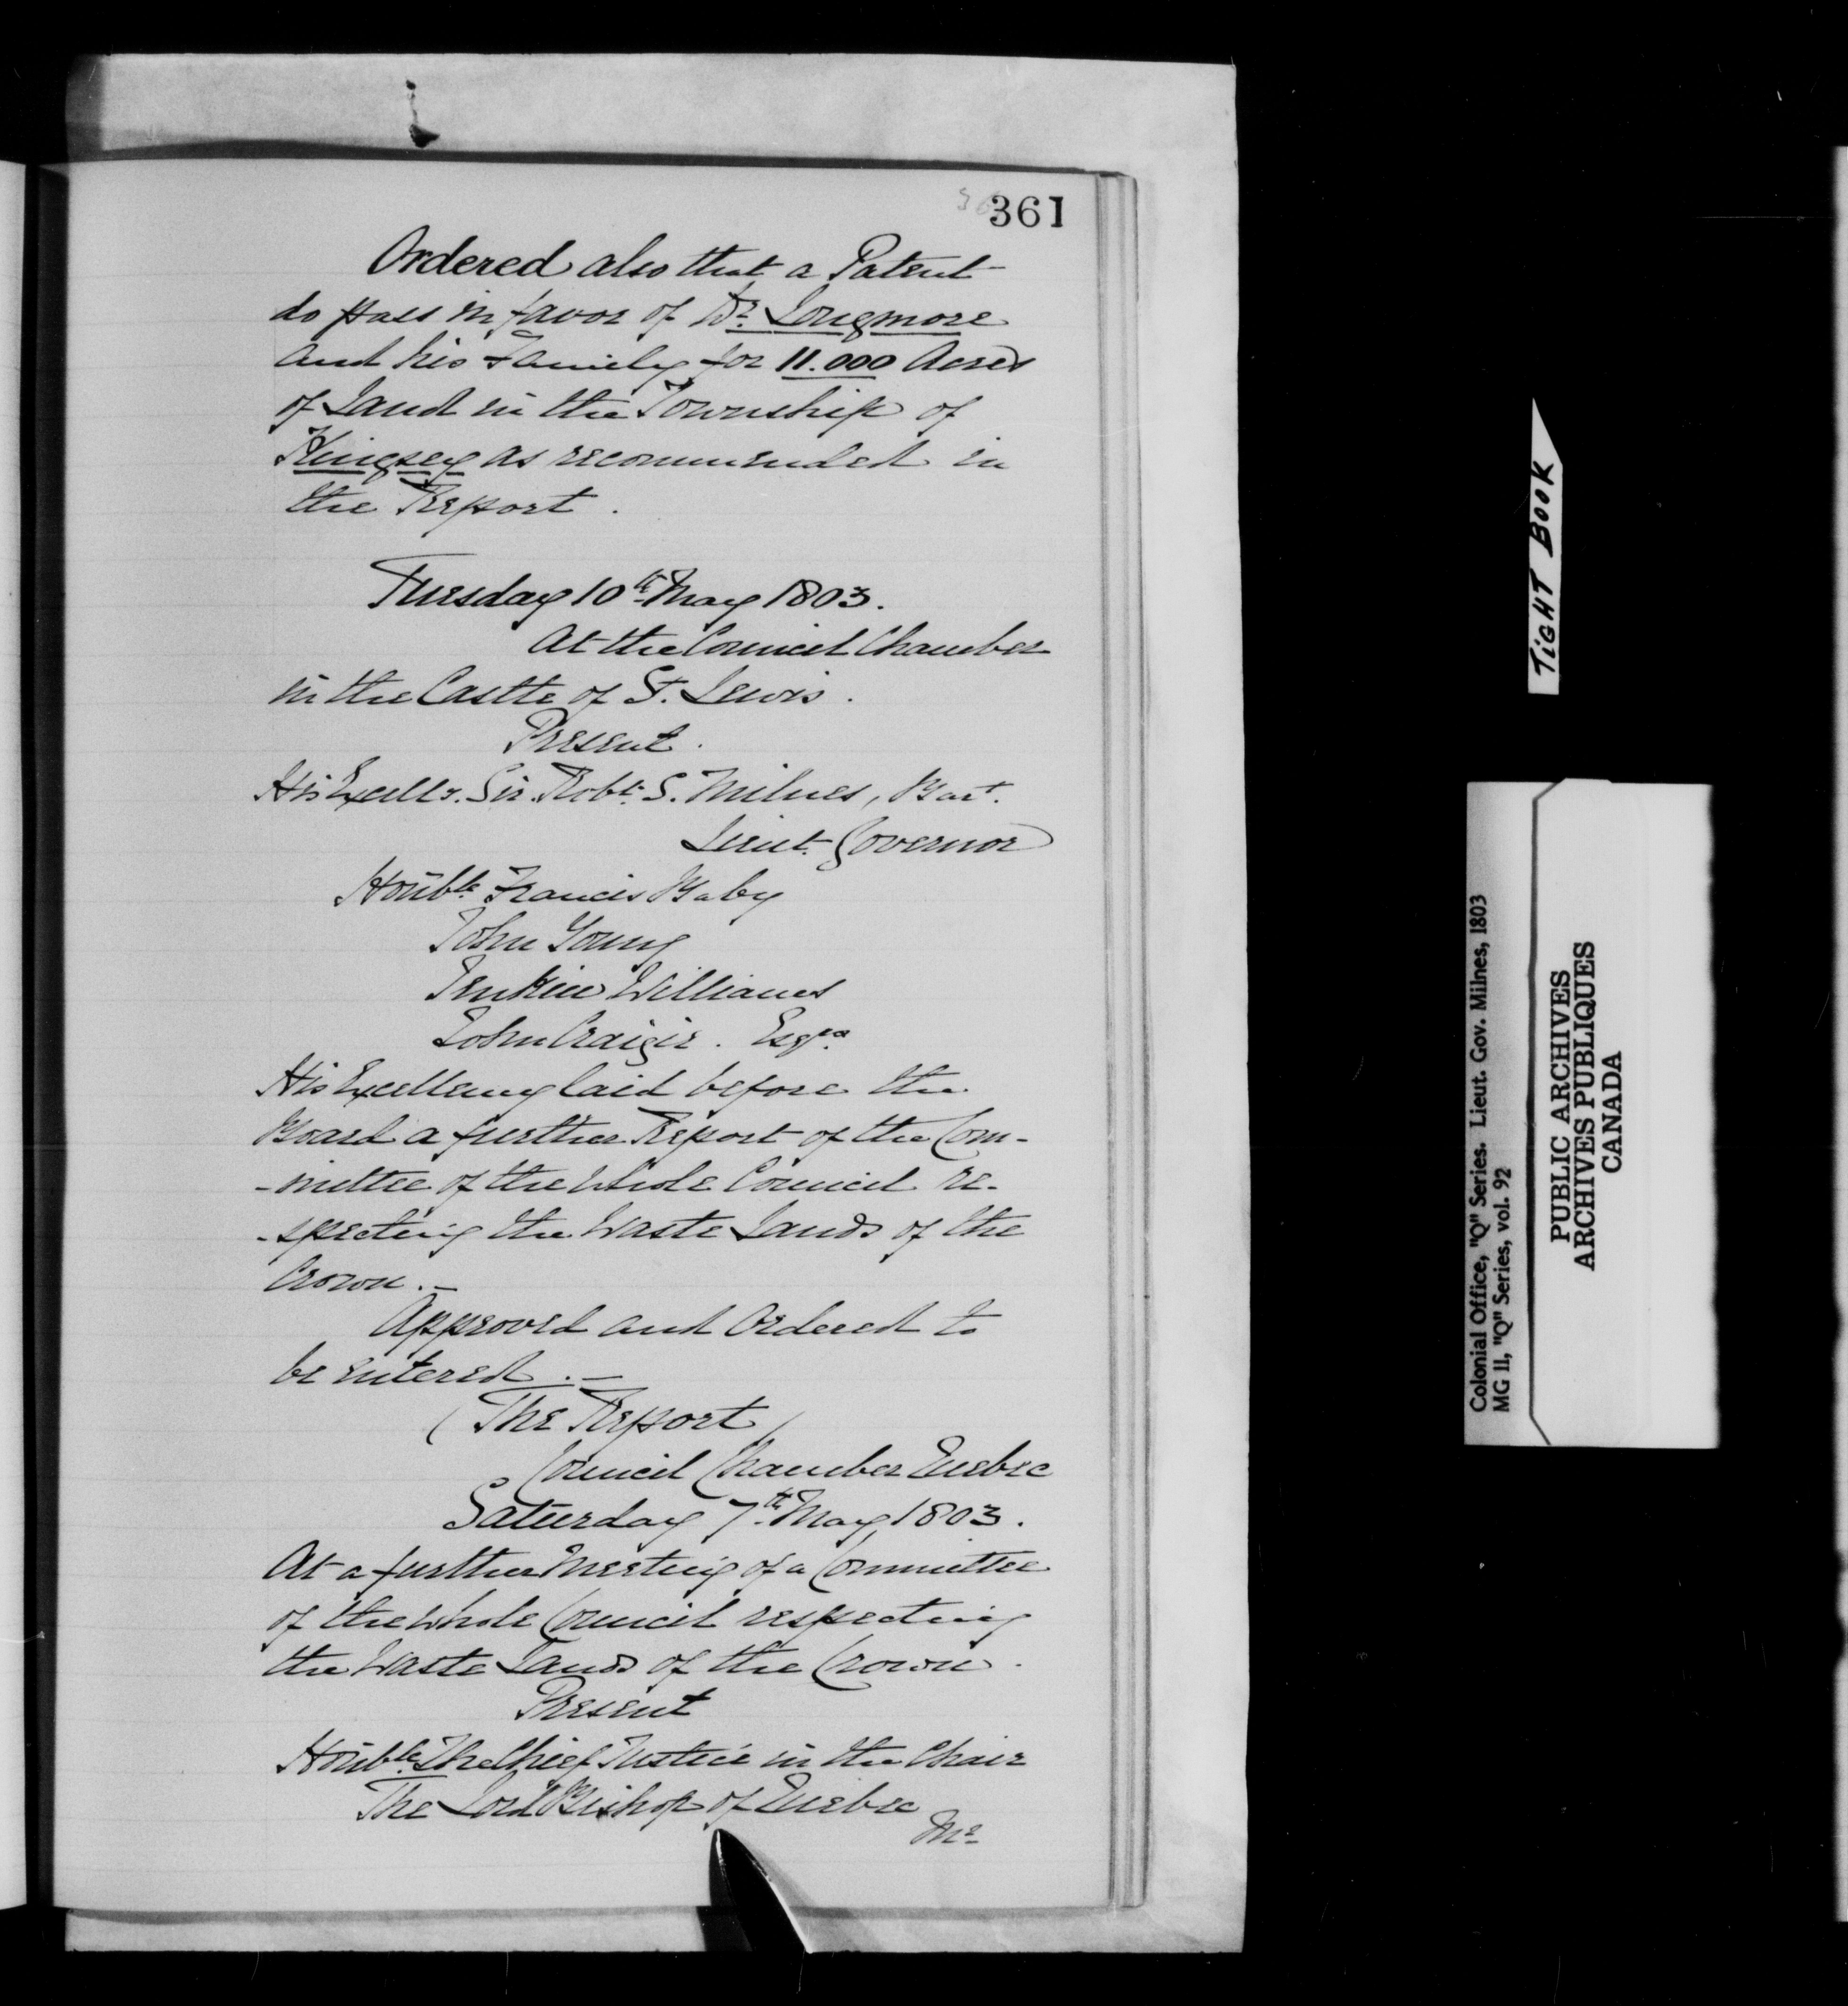 361
Ordered also that a Patent
do pass in favor of Dr. Longmore
and his Family for 11.000 Acres
of Land in the Township of
Kingsey as recommended in
the Report.
Tuesday 10th May 1803.
At the Council Chamber
in the Castle of St. Lewis.
Present.
His Excelly. Sir Robt. S. Milnes, Bart.
Lieut. Governor
Honble. Francis Baby
John Young
Jenkin Williams
John Craigie. Esqrs.
His Excellency laid before the
Board a further Report of the Com-
-mittee of the whole Council re-
-specting the Waste Lands of the
Crown.—
Approved and Ordered to
be entered.—
(The Report)
Council Chamber Quebec
Saturday 7th May 1803.
At a further Meeting of a Committee
of the whole Council respecting
the Waste Lands of the Crown.
Present
Honble. The Chief Justice in the Chair
The Lord Bishop of Quebec
Mr.
TIGHT BOOK
Colonial Office, "Q" Series. Lieut. Gov. Milnes, 1803
MG 11, "Q" Series, vol. 92
PUBLIC ARCHIVES
ARCHIVES PUBLIQUES
CANADA